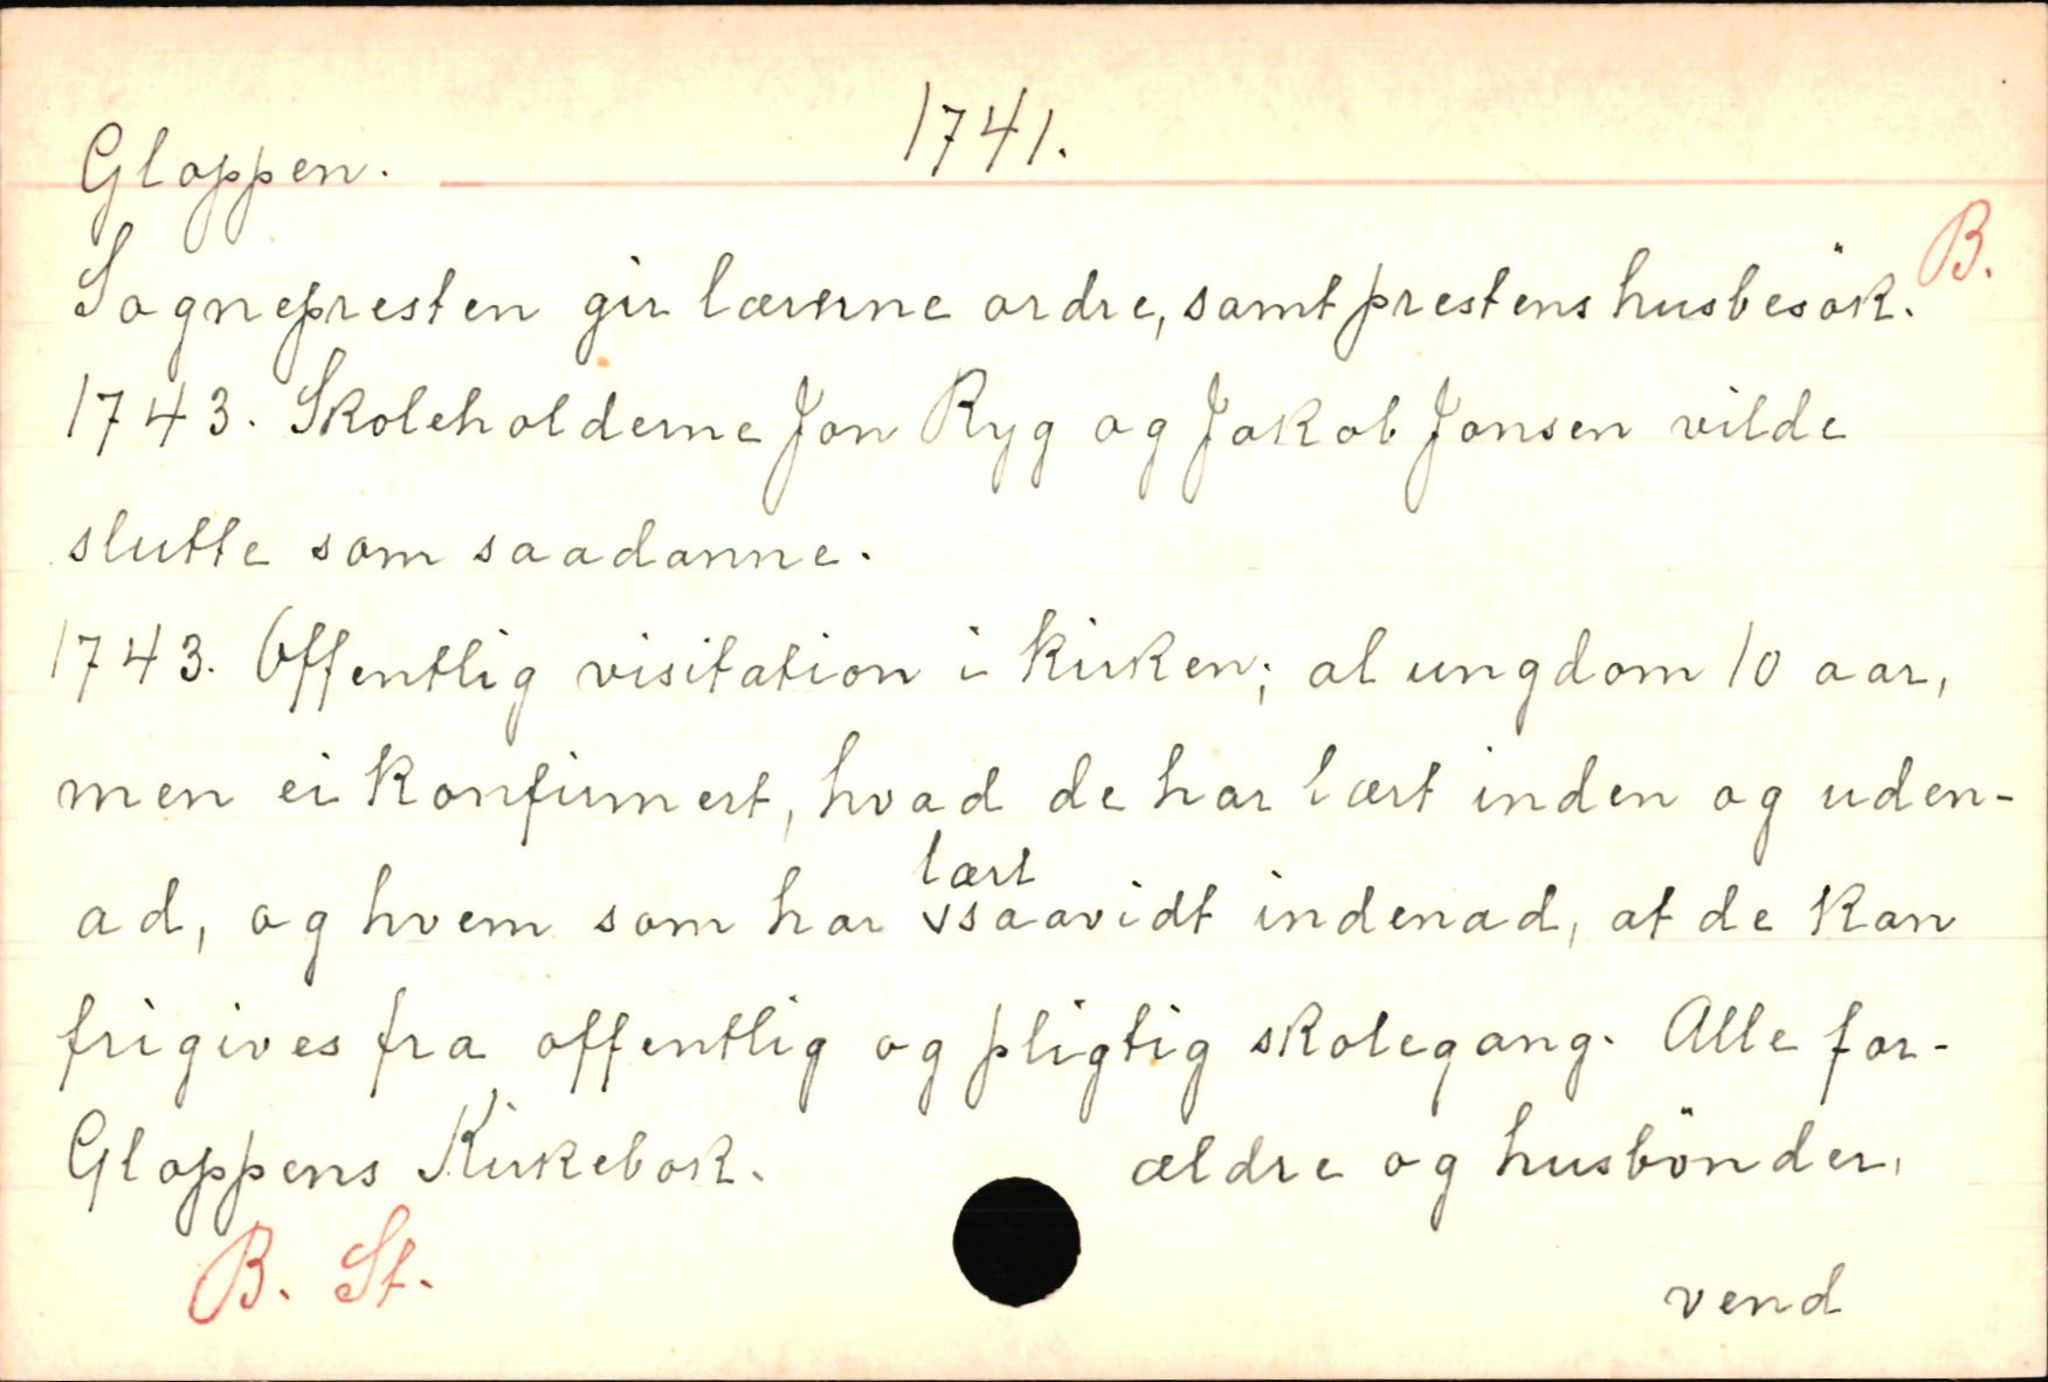 1741.
Gloppen.
B.
Sognepresten gir lærerne ordre, samt prestens husbesök.
1743. Skoleholderne Jon Ryg og Jakob Jonsen vilde
slutte som saadanne.
1743. Offentlig visitation i kirken; al ungdom 10 aar,
men ei konfirmert, hvad de har lært inden og uden-
lært
ad, og hvem som har saavidt indenad, at de kan
frigives fra offentlig og pligtig skolegang. Alle for-
Gloppens Kirkebok. ældre og husbönder,
B. St.
vend